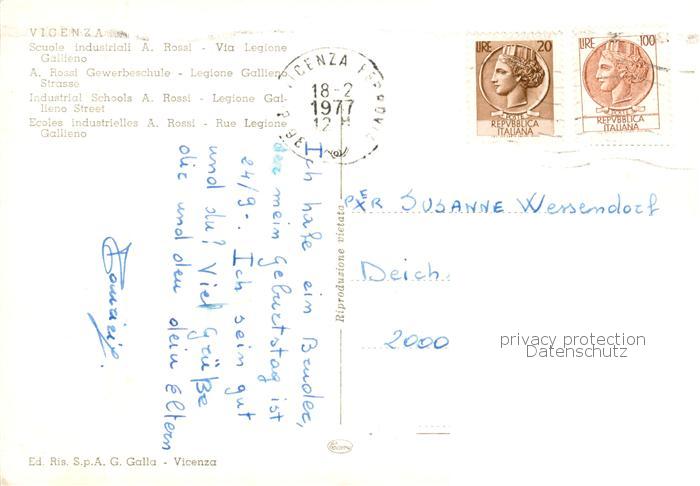 VICENZA
Scuole industriali A. Rossi - Via Legione
Gallieno
A. Rossi Gewerbeschule - Legione Gallieno
Strasse
Industrial Schools A. Rossi - Legione Gal-
lieno Street
Ecoles industrielles A. Rossi - Rue Legione
Gallieno
VICENZA FERROVIA
18-2
1977
12
LIRE 20
POSTE
REPVBBLICA
ITALIANA
LIRE 100
POSTE
REPVBBLICA
ITALIANA
Ich hale ein Bruder,
der mein Geburtstag ist
24/9-. Ich sein gut
und du? Viel Grüße
dir und den dein Eltern
Riproduzione vietata
PER SUSANNE Wessendorf
Deich
2000
privacy protection
Datenschutz
Ed. Ris. S.p.A. G. Galla - Vicenza